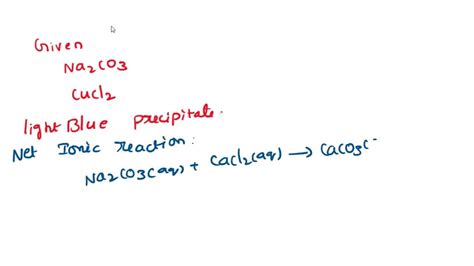 Given
Na2CO3
CuCl2
light Blue precipitate.
Net Ionic reaction:
Na2CO3(aq) + CaCl2(aq) → CaCO3(